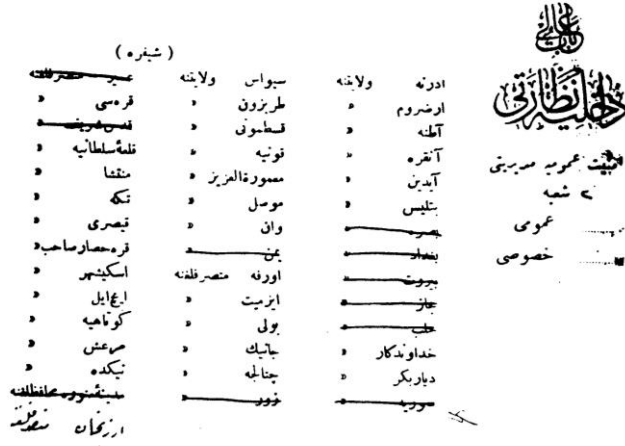 باب عالی
داخلیه نظارتی
امنیت عمومیه مدیریتی
۲ شعبه
عمومی
خصوصی
( شیفره )
ادرنه ولایتنه
ارضروم »
آطنه »
آنقره »
آیدین »
بتلیس »
بصره »
بغداد »
بیروت »
حجاز »
حلب »
خداوندکار »
دیاربکر »
سوریه »
سیواس ولایتنه
طربزون »
قسطمونی »
قونیه »
معمورةالعزیز »
موصل »
وان »
یمن »
اورفه متصرفلغنه
ایزمیت »
بولی »
جانیك »
چتالجه »
زور »
عسیر متصرفلغنه
قره‌سی »
قدس شریف »
قلعهٔ سلطانیه »
منتشا »
تکه »
قیصری »
قره‌حصار صاحب »
اسکیشهر »
ایچ ایل »
کوتاهیه »
مرعش »
نیکده »
مدینهٔ منوره محافظلغنه
ارزنجان متصرفلغنه